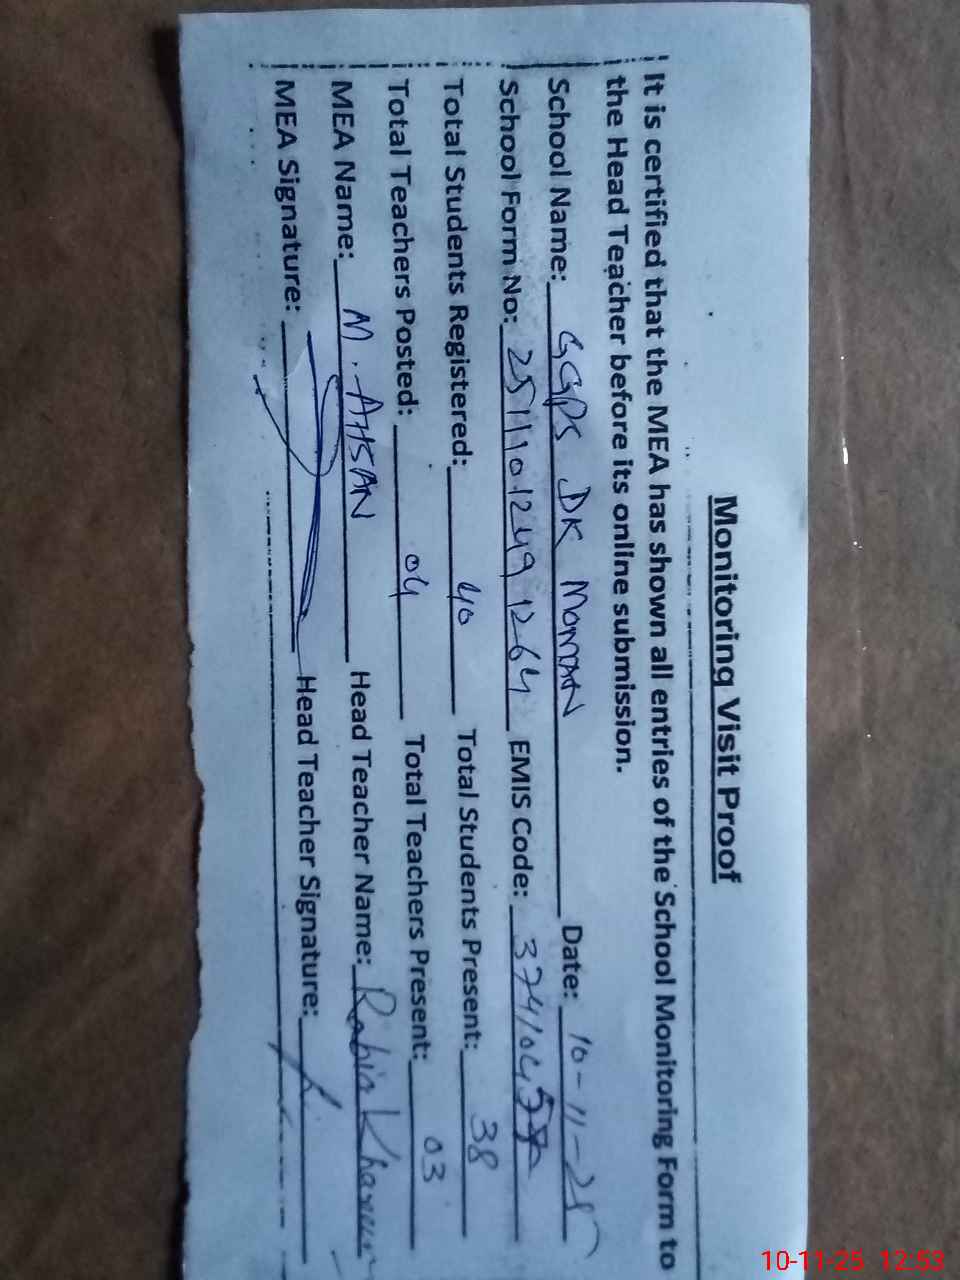 Monitoring Visit Proof
It is certified that the MEA has shown all entries of the School Monitoring Form to
the Head Teacher before its online submission.
School Name: GGPS DK MOMAN Date: 10-11-25
School Form No: 2511101249 1264 EMIS Code: 374104
Total Students Registered: 40 Total Students Present: 38
Total Teachers Posted: 04 Total Teachers Present: 03
MEA Name: M. AHSAN Head Teacher Name: Rabia Khanum
MEA Signature: Head Teacher Signature:
10-11-25 12:53